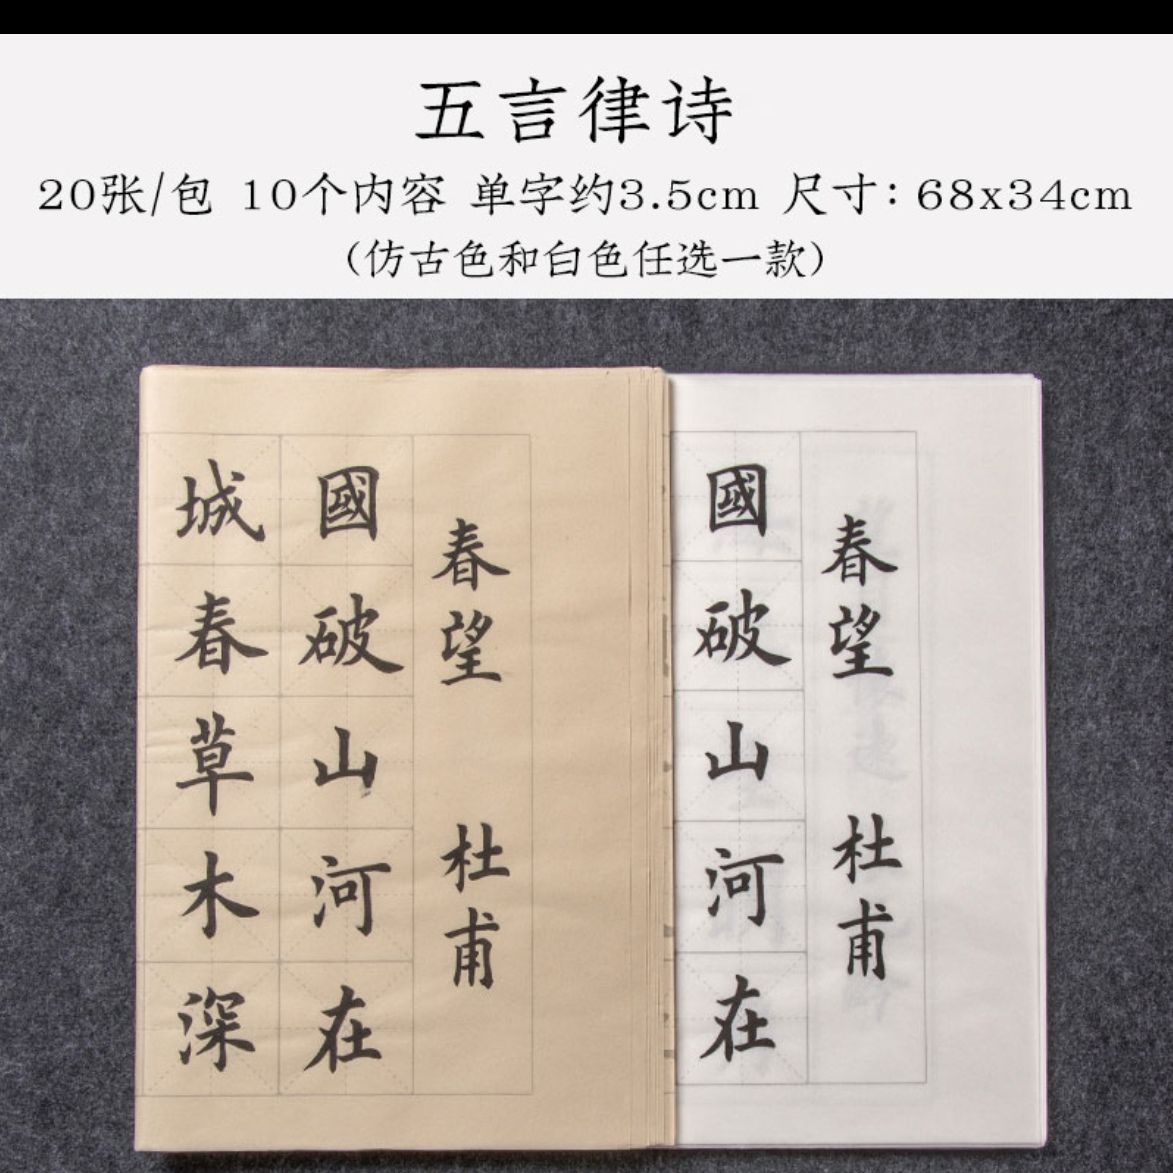 五言律诗
20张/包 10个内容 单字约3.5cm 尺寸：68x34cm
（仿古色和白色任选一款）
春望 杜甫
國破山河在
城春草木深
春望 杜甫
國破山河在